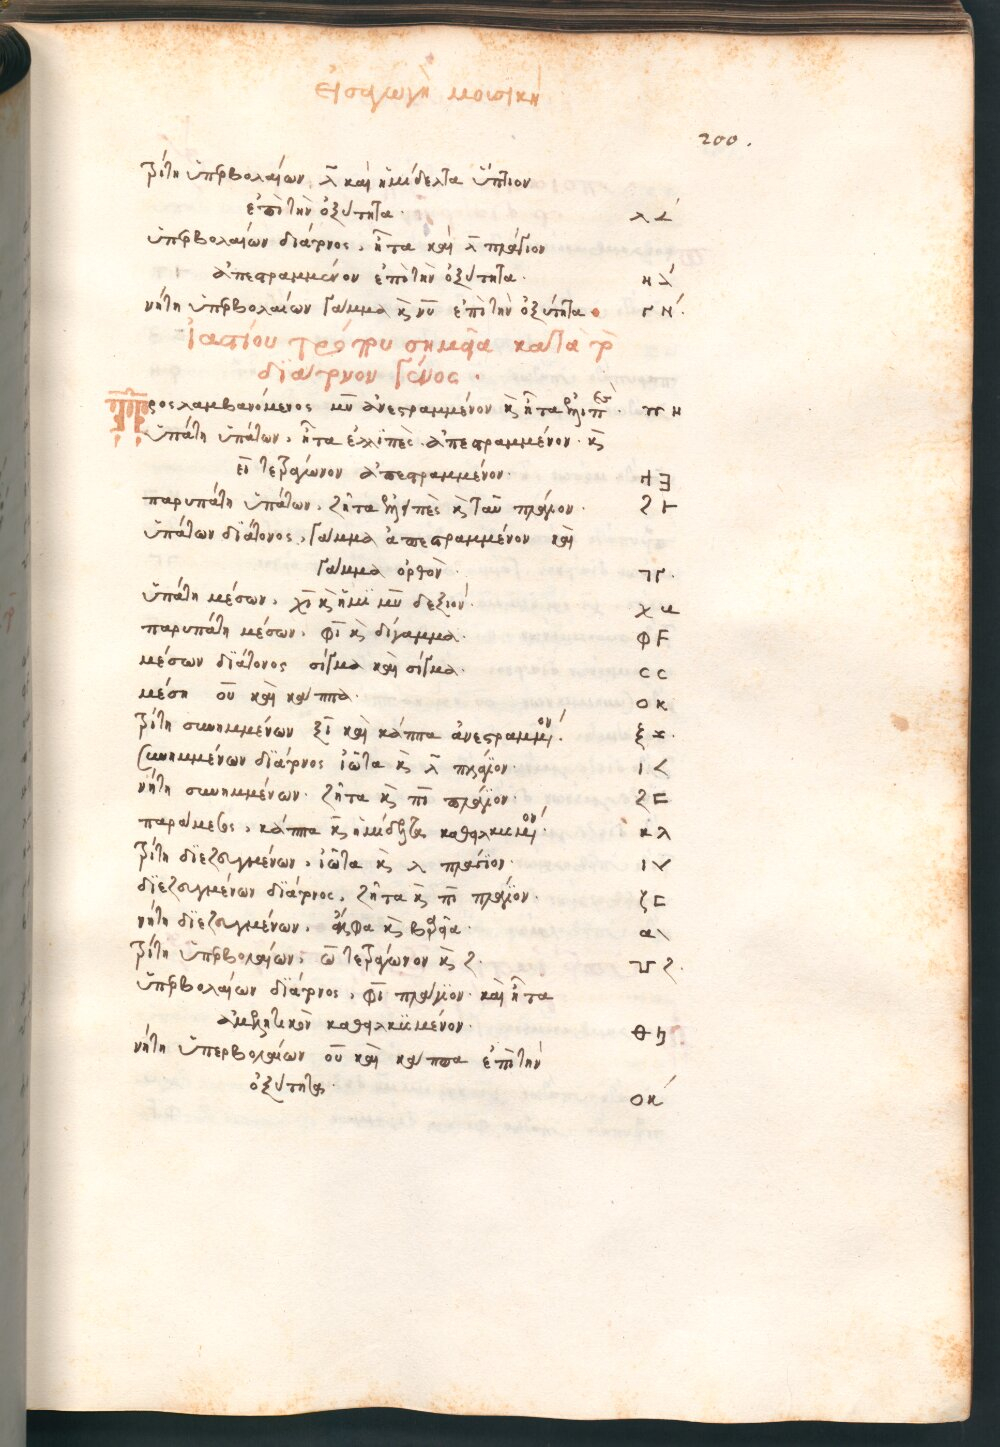 εἰσαγωγὴ μουσικὴ
200.
τρίτη ὑπερβολαίων λ̄ καὶ ἡμίδελτα ὕπτιον
ἐπὶ τὴν ὀξύτητα· λ ∠́
ὑπερβολαίων διάτονος, ἦτα καὶ λ̄ πλάγιον
ἀπεστραμμένον ἐπὶ τὴν ὀξύτητα· н
νήτη ὑπερβολαίων γάμμα κ̀ νῦ ἐπὶ τὴν ὀξύτητα Γ Ν́·
Ἰαστίου τρόπου σημεῖα κατὰ τὸ
διάτονον γένος·
προσλαμβανόμενος μῦ ἀνεστραμμένον κ̀ ἦτα ἐλλιπ
ὑπάτη ὑπάτων, ἦτα ἐλιπὲς ἀπεστραμμένον· κ̀
εῖ τετράγωνον ἀπεστραμμένον· Ǝ
παρυπάτη ὑπάτων, ζῆτα ἐλιπὲς κ̀ ταῦ πλάγιον· Ζ Ͱ
ὑπάτων διάτονος, γάμμα ἀπεστραμμένον καὶ
γάμμα ὀρθὸν· ꓶ Γ·
ὑπάτη μέσων, χῖ κ̀ ἥμι μῦ δεξιόν·
παρυπάτη μέσων, φῖ κ̀ δίγαμμα· Φ F
μέσων διάτονος σίγμα καὶ σίγμα· C C
μέση οὖ καὶ κάππα· Ο Κ
τρίτη συνημμένων ξῖ καὶ κάππα ἀνεστραμμένον·
συνημμένων διάτονος ἰῶτα κ̀ λ̄ πλάγιον· Ι <
νήτη συνημμένων· ζῆτα κ̀ πῖ πλάγιον· Ζ ⊏
παράμεσος, κάππα κ̀ ἡμίδελτα καθειλκυσμένον· κ λ
τρίτη διεζευγμένων, ἰῶτα κ̀ λ πλάγιον· Ι <
διεζευγμένων διάτονος, ζῆτα κ̀ πῖ πλάγιον· ζ ⊏
νήτη διεζευγμένων, α \
τρίτη ὑπερβολαίων, ω̄ τετράγωνον κ̀ Ζ· Ζ·
ὑπερβολαίων διάτονος, φῖ πλάγιον· καὶ ἦτα
ἀμελητικὸν καθειλκυσμένον· Θ
νήτη ὑπερβολαίων οὖ καὶ κάππα ἐπὶ τὴν
ὀξύτητα· Ο Κ́